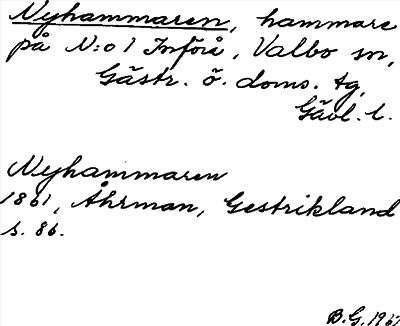 Nyhammaren, hammare
på N:o 1 Forså, Valbo sn,
Gästr. ö. doms. tg,
Gävl. l.
Nyhammaren
1861, Åhrman, Gestrikland
s. 86.
B.G. 196